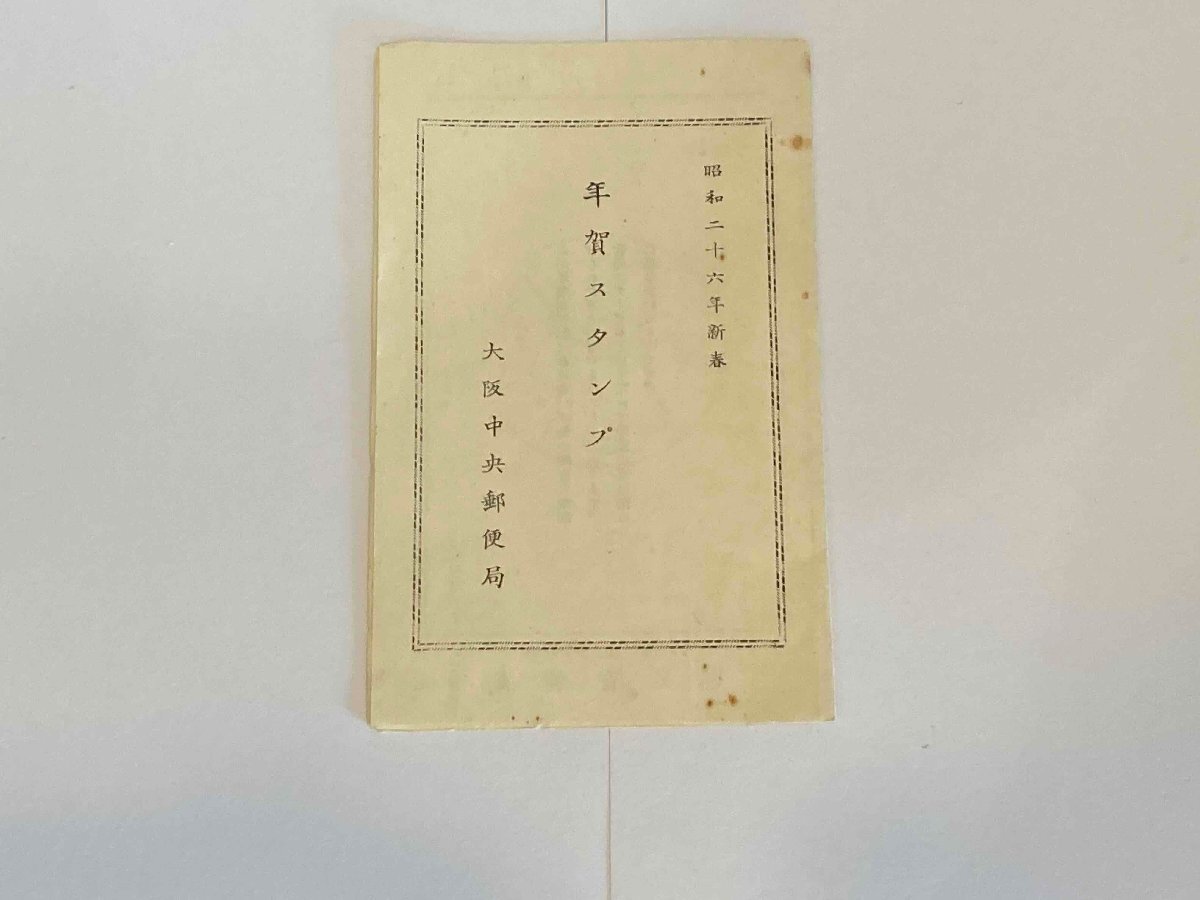 昭和二十六年新春
年賀スタンプ
大阪中央郵便局